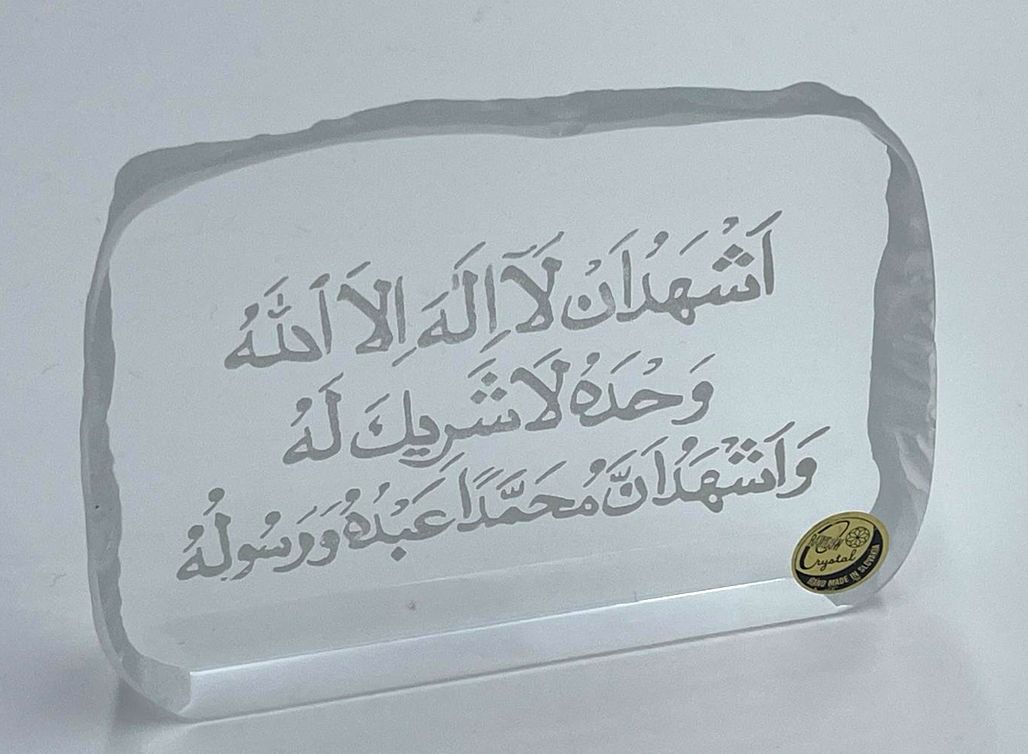 اَشْهَدُ اَنْ لَآ اِلٰهَ اِلاَ اَللّٰهُ
وَحْدَهُ لَا شَرِيكَ لَهُ
وَاَشْهَدُ اَنَّ مُحَمَّدًا عَبْدُهُ وَرَسُولُهُ
Crystal
HAND MADE IN SLOVAKIA